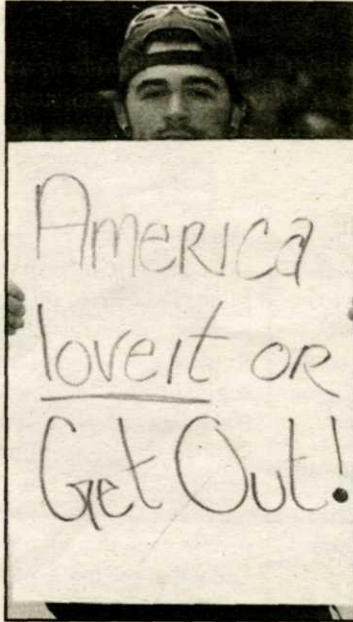 America
love it or
Get Out!